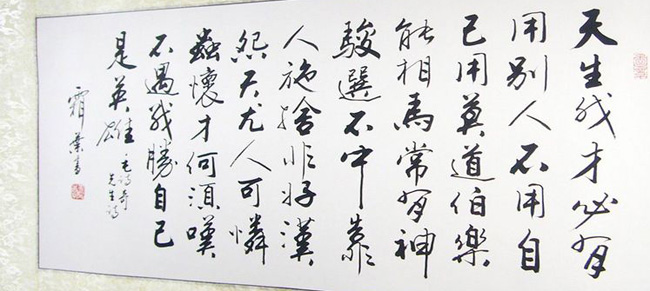 天生我才必有
用别人不用自
己用莫道伯樂
能相馬常有神
駿選不中靠
人施捨非好漢
怨天尤人可憐
蟲懷才何須嘆
不遇战勝自己
是英雄
毛诗奇
先生诗
霜葉书